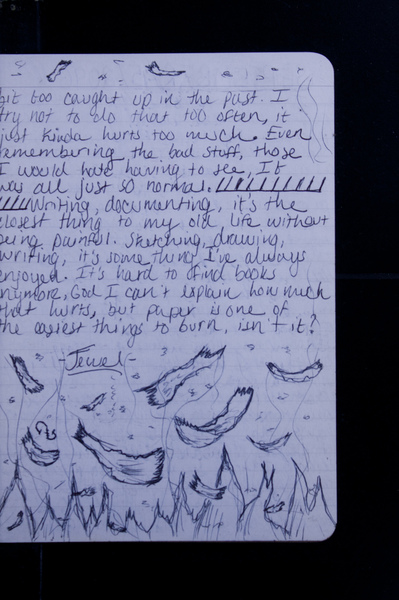 bit too caught up in the past. I
try not to do that too often, it
just kinda hurts too much. Even
remembering the bad stuff, those
I would hate having to see, It
was all just so normal.
Writing, documenting, it's the
closest thing to my old life without
being painful. Sketching, drawing,
writing, it's something I've always
enjoyed. It's hard to find books
anymore, God I can't explain how much
that hurts, but paper is one of
the easiest things to burn, isn't it?
-Jewel-